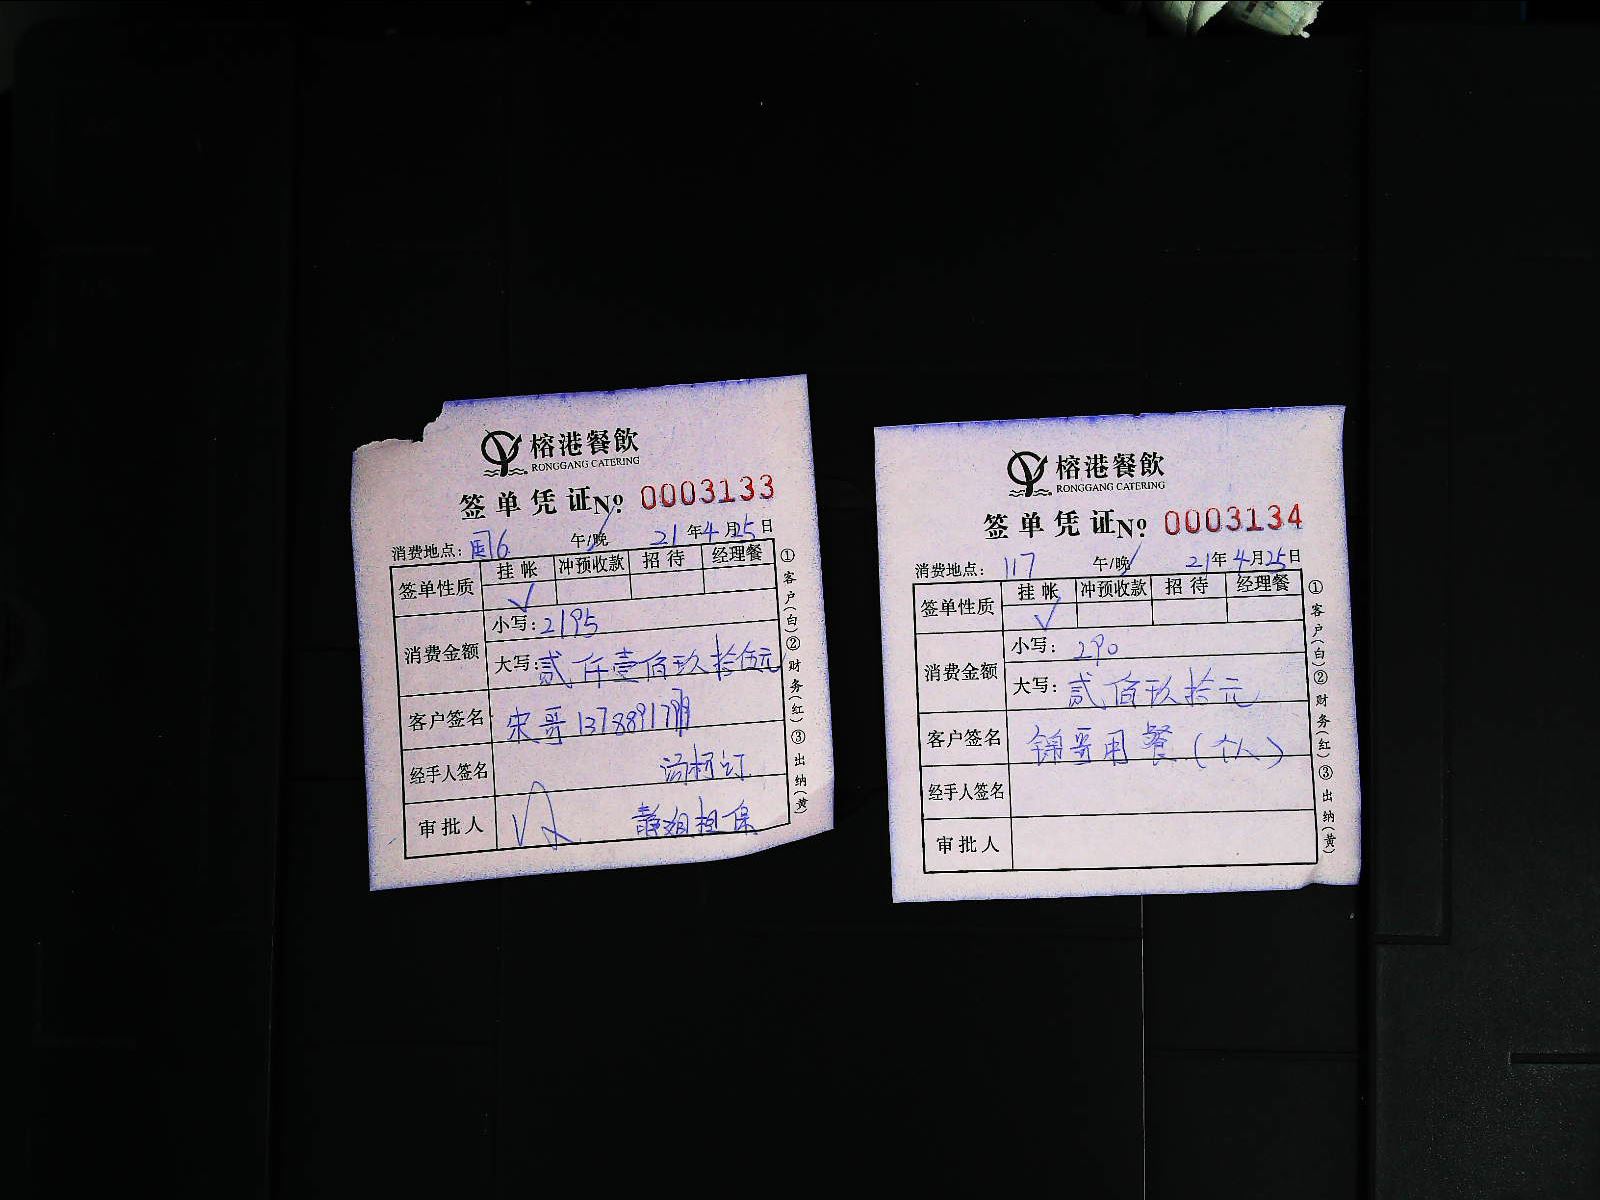 榕港餐飲
RONGGANG CATERING
签单凭证 № 0003133
消费地点: 国6 午/晚 21年4月25日
签单性质 挂帐 冲预收款 招待 经理餐
√
消费金额 小写: 2195
大写: 贰仟壹佰玖拾伍元
客户签名 宋哥
经手人签名
审批人 静姐担保
①客户(白)②财务(红)③出纳(黄)
榕港餐飲
RONGGANG CATERING
签单凭证 № 0003134
消费地点: 117 午/晚 21年4月25日
签单性质 挂帐 冲预收款 招待 经理餐
√
消费金额 小写: 290
大写: 贰佰玖拾元
客户签名 锦哥用餐(个人)
经手人签名
审批人
①客户(白)②财务(红)③出纳(黄)